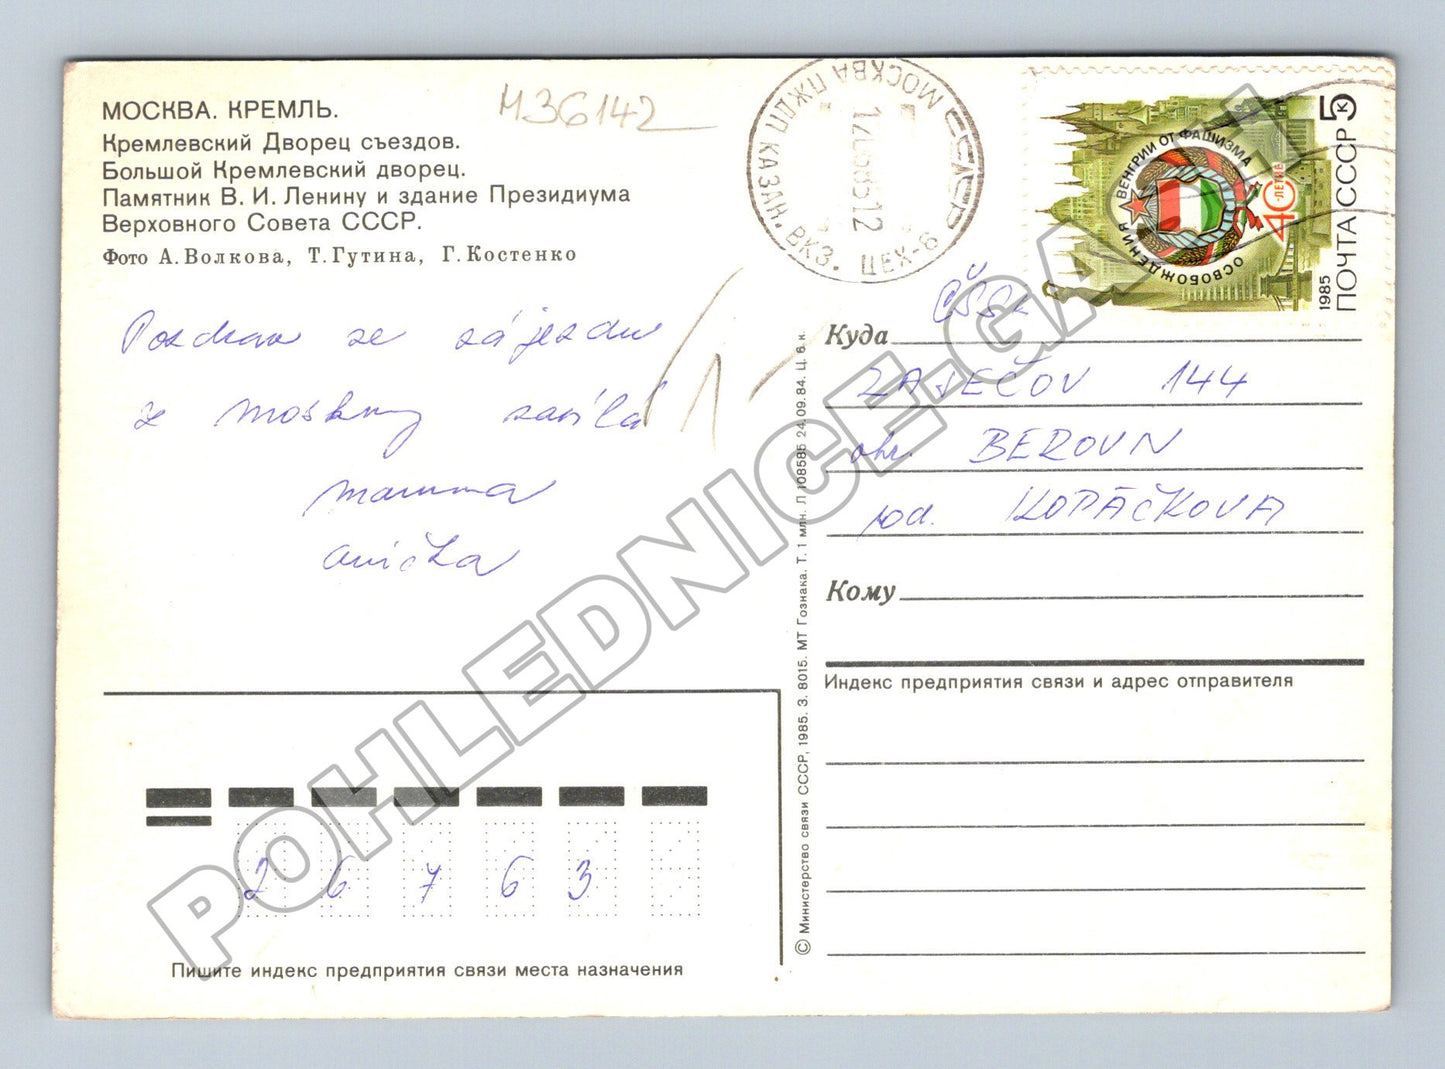 МОСКВА. КРЕМЛЬ.
Кремлевский Дворец съездов.
Большой Кремлевский дворец.
Памятник В. И. Ленину и здание Президиума
Верховного Совета СССР.
Фото А. Волкова, Т. Гутина, Г. Костенко
M36142
МОСКВА ПЖДП КАЗАН. ВКЗ. ЦЕХ-6
ОСВОБОЖДЕНИЯ ВЕНГРИИ ОТ ФАШИЗМА
40-ЛЕТИЕ
1985 ПОЧТА СССР 5к
Pozdrav ze zájezdu
z Moskvy zasílá
mamma
anička
1-
Куда ČSSR
ZAJEČOV 144
okr. BEROUN
rod. KOPÁČKOVA
Кому
Индекс предприятия связи и адрес отправителя
26763
Пишите индекс предприятия связи места назначения
© Министерство связи СССР, 1985. З. 8015. МТ Гознака. Т. 1 млн. Л 108585 24.09.84. Ц. 6 к.
POHLEDNICE.GALERI